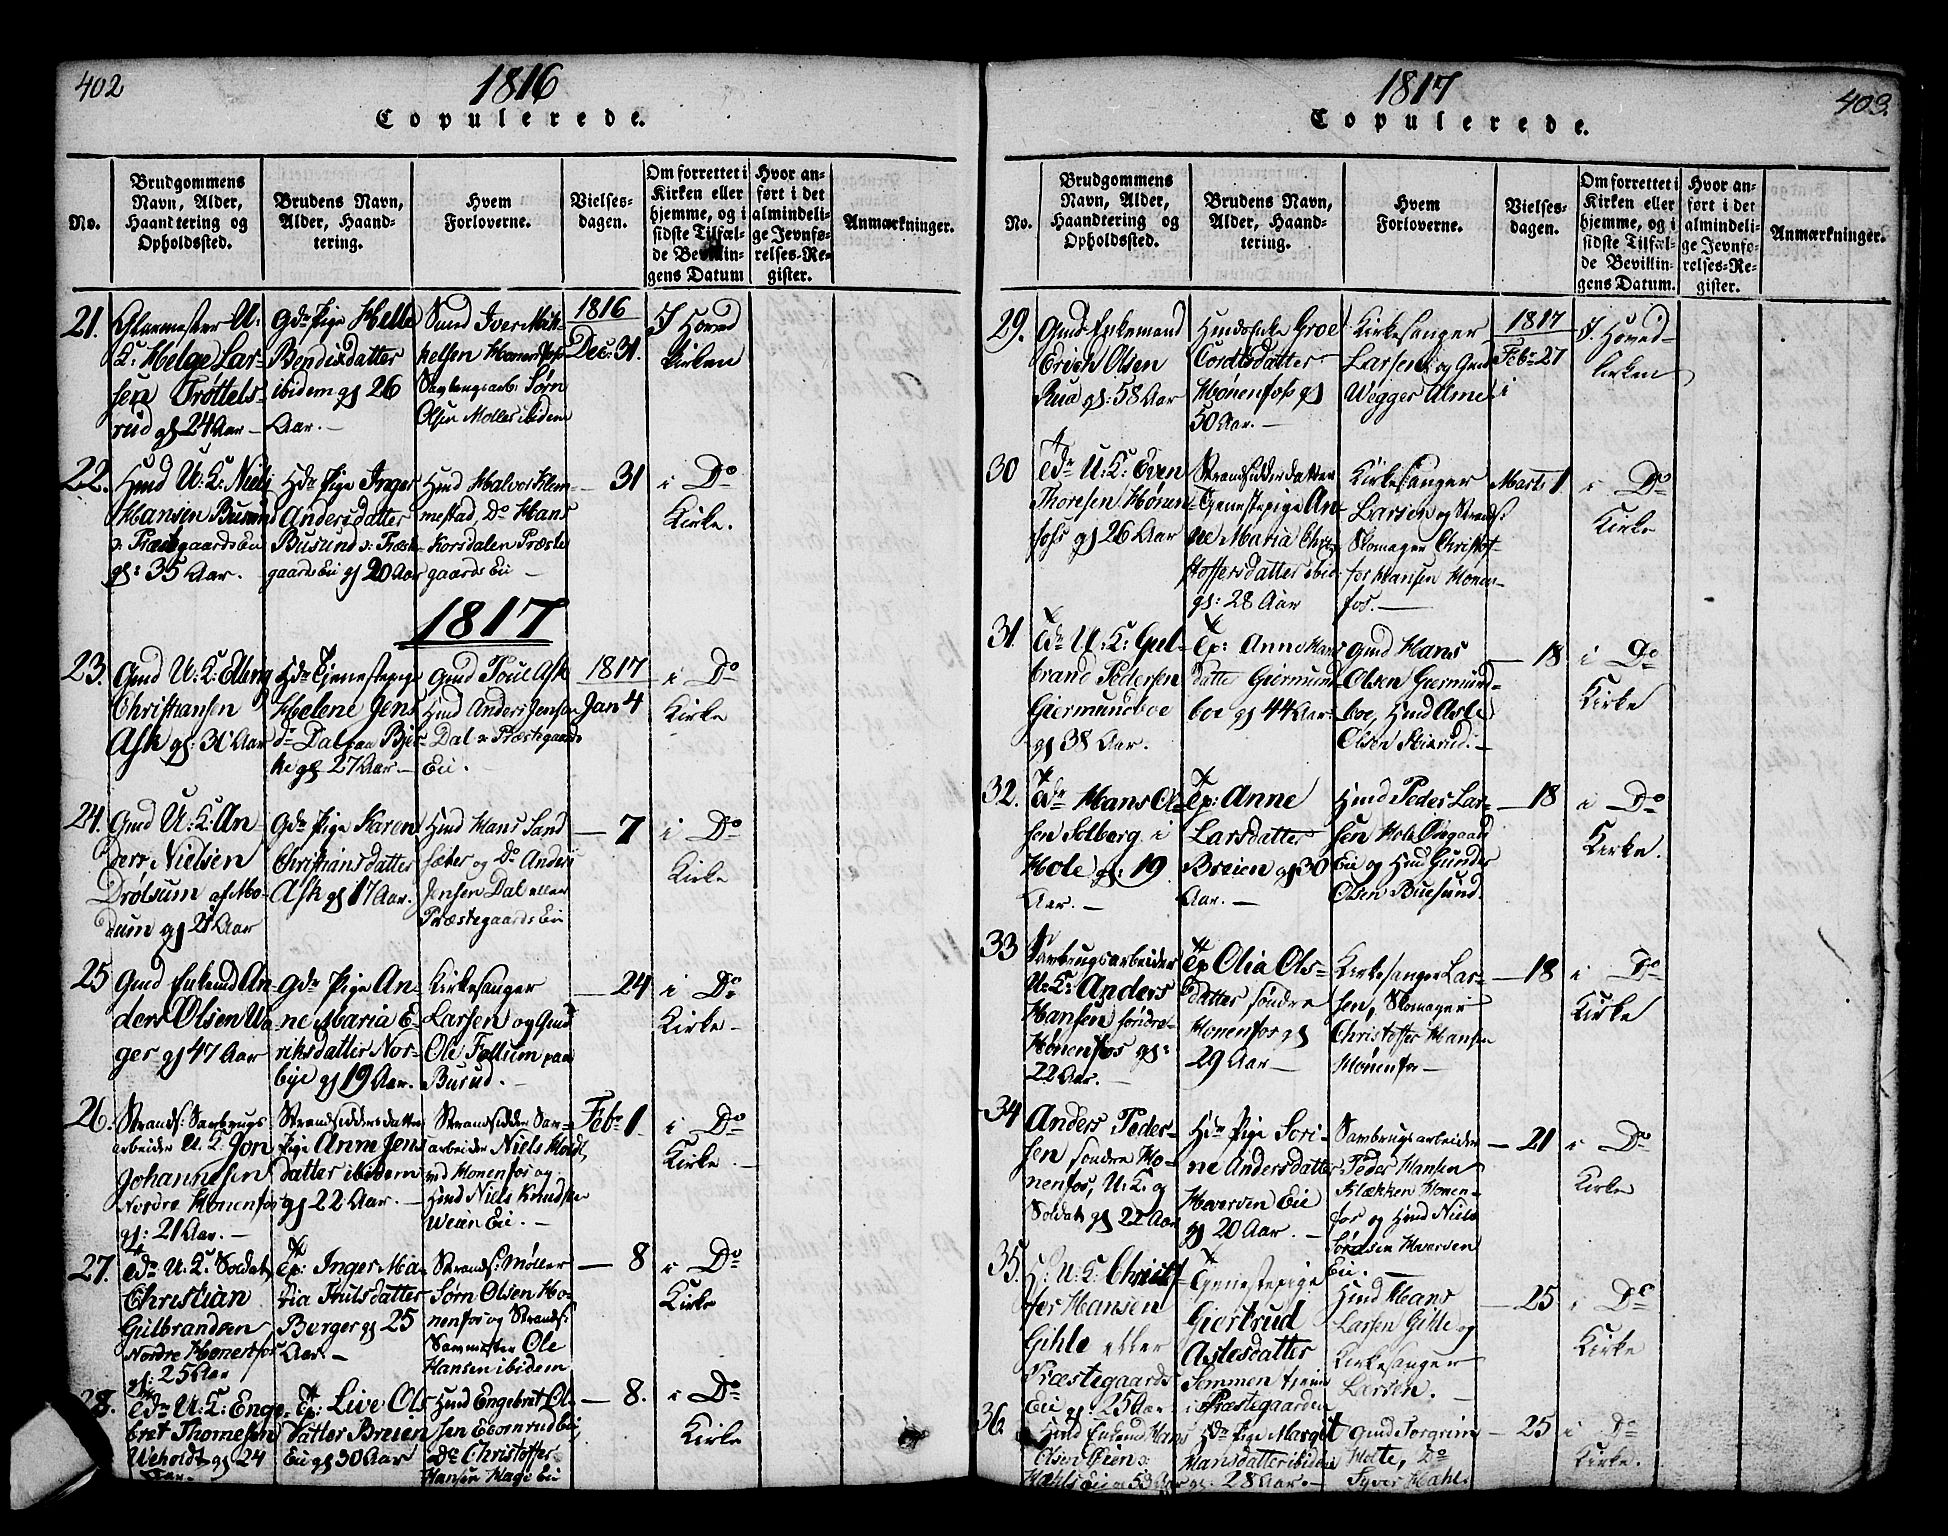 402
1816
Copulerede.
No.
Brudgommens
Navn, Alder,
Haandtering og
Opholdssted.
Brudens Navn,
Alder, Haand-
tering.
Hvem
Forloverne.
Vielses-
dagen.
Om forrettet i
Kirken eller
hjemme, og i
sidste Tilfæl-
de Bevillin-
gens Datum
Hvor an-
ført i det
almindeli-
ge Jevnfø-
relses-Re-
gister.
Anmærkninger.
21.
U:
K: Helge Lar-
sen Trøttels-
rud gl 24 Aar
Gdr Pige Helle
Bendixdatter
ibidem gl 26
Aar.
Iver Mik-
kelsen
Sørn
Olsen Møller ibidem
1816
Dec: 31.
I Hoved
Kirken
22.
Hmd U: K: Niels
Hansen Busund
Præstgaards Eie
gl: 35 Aar.
Hdr Pige Inger
Andersdatter
Busund Præst
gaards Eie gl 20 Aar
Hmd Halvor Klem-
mestad, Do Hans
Korsdalen Præste
gaards Eie
31
i Do
Kirke.
1817
23.
Gmd U: K: Elling
Christiansen
Ask gl: 30 Aar
Hdr Tjenestepige
Helene Jens
dr Dal paa Bjer-
ke gl 27 Aar
Gmd Poul Ask
Hmd Anders Jensen
Dal Præstegaards
Eie.
1817
Jan 4
i Do
Kirke
24.
Gmd U: K: An
ders Nielsen
Drølsum af Mo-
dum gl 21 Aar
Gdr Pige Karen
Christiansdatter
Ask gl 17 Aar.
Hmd Hans Sand
sæter og Do Anders
Jensen Dal
Præstegaards Eie
7
i Do
Kirke
25
Gmd Enkemd An
ders Olsen Un
ger gl 47 Aar
Gdr Pige An-
ne Maria E-
riksdatter Nor-
bye gl 19 Aar.
Kirkesanger
Larsen og Gmd
Ole Follum paa
Busud.
24
i Do
Kirke
26.
Strands: Saubrugs
arbeider U: K: Jon
Johannesen
Nordre Honenfos
gl: 21 Aar.
Strandsiddersdatter
Pige Anne Jens
datter ibidem
gl 22 Aar.
Strandsidder Sau-
arbeider Niels Holdt,
ved Honenfos og
Hmd Niels Knudsen
Weien Eie.
Febr 1
i Do
Kirke
27.
Edr U: K: Soldat
Christian
Gulbrandsen
Nordre Honenfos
gl: 25 Aar
Tp: Inger Ma
ria Truls datter
Berger gl 25
Aar.
Strands: Møller
Sørn Olsen Ho-
nenfos og Strands:
Saumester Ole
Hansen ibidem
8
i Do
Kirke
28.
Edr U: K: Enge
bret Thomesen
Weholdt gl 24
Aar.
Tp: Live Ols
datter Breien
Eie gl 30 Aar
Hmd Engebret Ol-
sen Ecornrud Eie
Do Christoffer
Hansen Hage Eie
8.
i Do
Kirke
1817
403.
Copulerede.
No.
Brudgommens
Navn, Alder,
Haandtering og
Opholdssted.
Brudens Navn,
Alder, Haand-
tering.
Hvem
Forloverne.
Vielses-
dagen.
Om forrettet i
Kirken eller
hjemme, og i
sidste Tilfæl-
de Bevillin-
gens Datum.
Hvor an-
ført i det
almindeli-
ge Jevnfø-
relses-Re-
gister.
Anmærkninger.
29.
Gmd Enkemand
Erich Olsen
Rua gl: 58 Aar
Huusenke Groe
Cordtsdatter
Hønenfos gl
50 Aar.
Kirkesanger
Larsen, og Gmd
Wegger Alme
1817
Febr 27
I. Hoved-
kirken
30
Edr U: K: Even
Thoresen Hønen
fos gl 26 Aar
Strandsidderdatter
Tjenestepige An-
ne Maria Chri-
stoffersdatter ibid
gl: 28 Aar
Kirkesanger
Larsen og Strands:
Skomager Christof-
fer Hansen Honen-
fos.
Marts 1
i Do
Kirke
31.
Edr U: K: Gul-
brand Pedersen
Giermundboe
gl 38 Aar.
Tp: Anne Hans
datter Giermund
boe gl 44 Aar
Gmd Hans
Olsen Giermund-
boe, Hmd Asle
Olsen
18
i Do
Kirke
32.
Edr Hans Ol-
sen Solberg i
Hole gl: 19
Aar.
Tp: Anne
Larsdatter
Breien gl 30
Aar.
Hmd Peder Lar-
sen Hole
Eie og Hmd Gunder
Olsen Busund.
18
i Do
Kirke.
33
Saubrugsarbeider
U: K: Anders
Hansen søndre
Hønenfos gl:
22 Aar.
Tp Olia Ols-
datter søndre
Honenfos gl
29 Aar
Kirkesanger Lar-
sen, Skomager
Christoffer Hansen
Hønenfos
18
i Do
Kirke
34
Anders Peder-
sen søndre Ho-
nenfos, U: K: og
Soldat gl 22 Aar
Hdr Pige Sori-
ne Andersdatter
Hverven Eie
gl 20 Aar.
Saubrugsarbeider
Peder Hansen
Klækken Honen-
fos og Hmd Niels
Sørensen Hverven
Eie.
21
i Do
Kirke
35.
H: U: K: Christof
fer Hansen
Gihle eller
Præstegaards
Eie gl: 25 Aar
Tjenestepige
Giertrud
Aslesdatter
Semmen
i Præstegaarden
Hmd Hans
Larsen Gihle og
Kirkesanger
Larsen.
25
i Do
Kirke
36.
Hmd Enkemd Hans
Olsen
Hahls Eie gl 53 Aar
Hdr Pige Margit
Hansdatter ibidem
gl. 28 Aar.
Gmd Torgrim
Holte, Do
Syver Hahl.
25
i Do
Kirke.